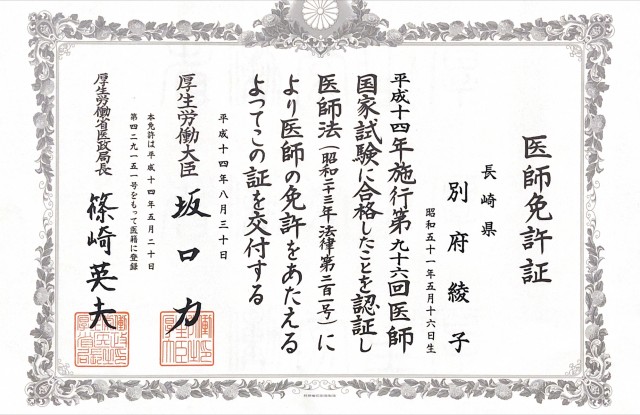 医師免許証
長崎県
別府綾子
昭和五十一年五月十六日生
平成十四年施行第九十六回医師
国家試験に合格したことを認証し
医師法(昭和二十三年法律第二百一号)に
より医師の免許をあたえる
よってこの証を交付する
平成十四年八月三十日
厚生労働大臣 坂口力
本免許は平成十四年五月二十日
第四二九一五一号をもって医籍に登録
厚生労働省医政局長 篠崎英夫